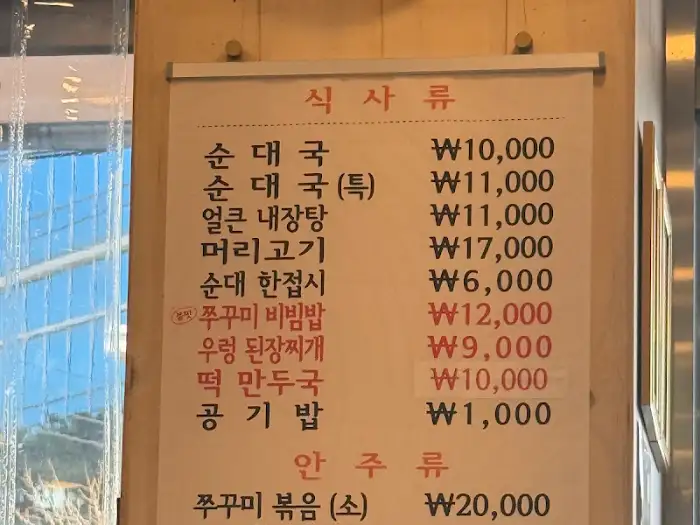 식 사 류
순 대 국 ₩10,000
순 대 국 (특) ₩11,000
얼큰 내장탕 ₩11,000
머리고기 ₩17,000
순대 한접시 ₩6,000
쭈꾸미 비빔밥 ₩12,000
우렁 된장찌개 ₩9,000
떡 만두국 ₩10,000
공 기 밥 ₩1,000
안 주 류
쭈꾸미 볶음 (소) ₩20,000